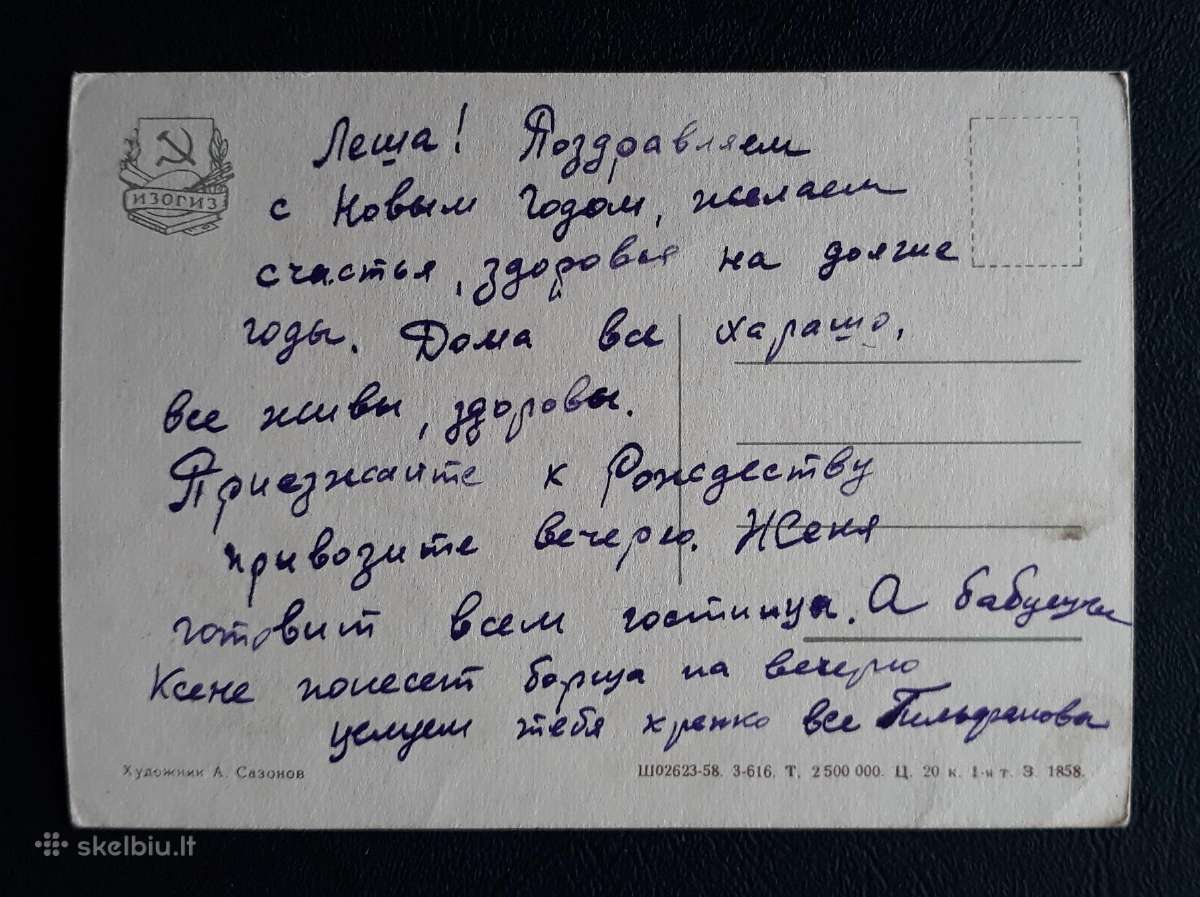 ИЗОГИЗ
Леша! Поздравляем
с Новым Годом, желаем
счастья, здоровья на долгие
годы. Дома все харашо,
все живы, здоровы.
Приезжайте к Рождеству
привозите вечерю. Женя
готовит всем гостинцы. А бабушки
Ксене понесет борща на вечерю
целуем тебя крепко все
Художник А. Сазонов
Ш02623-58. 3-616. Т. 2 500 000. Ц. 20 к. 1-я т. З. 1858.
skelbiu.lt